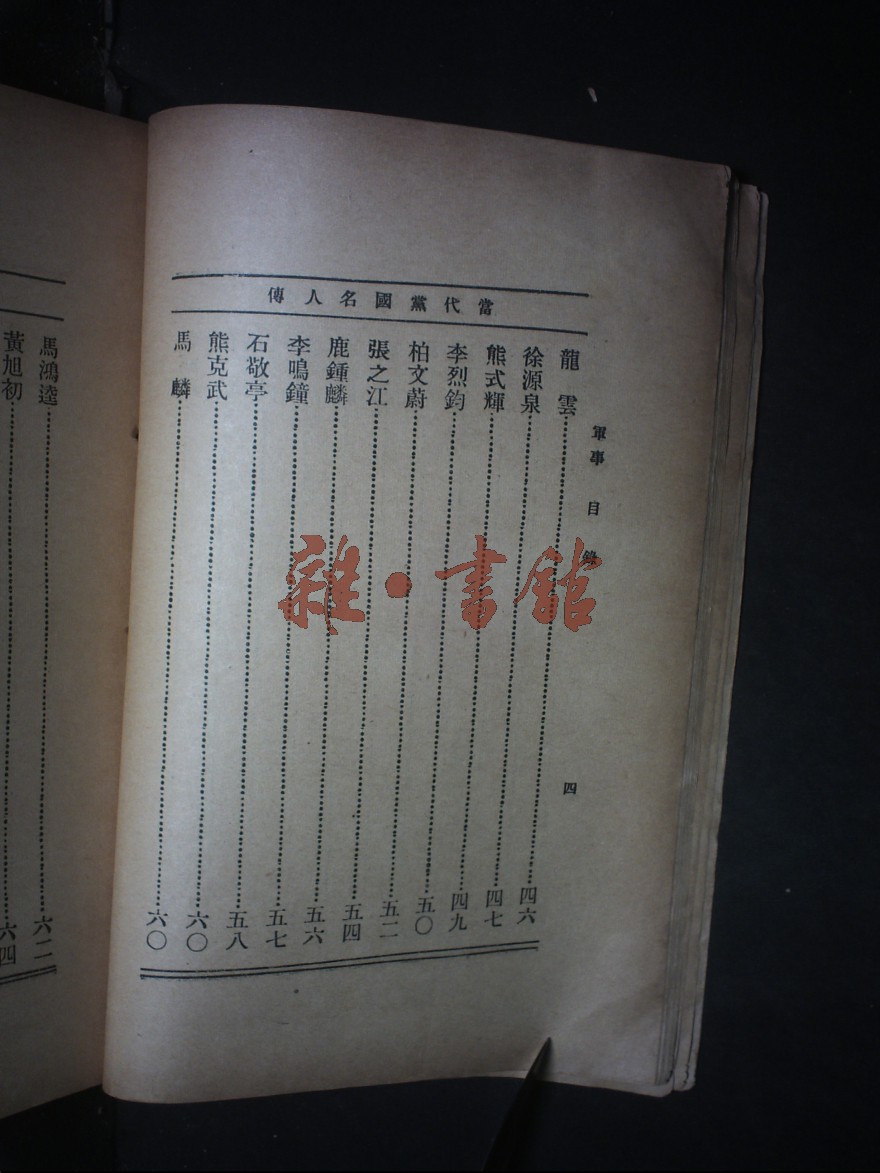 當代黨國名人傳
軍事 目錄 四
龍雲……四六
徐源泉……四七
熊式輝……四九
李烈鈞……五〇
柏文蔚……五二
張之江……五四
鹿鍾麟……五六
李鳴鐘……五七
石敬亭……五八
熊克武……六〇
馬麟……六〇
馬鴻逵……六二
黃旭初……六四
雜·書館